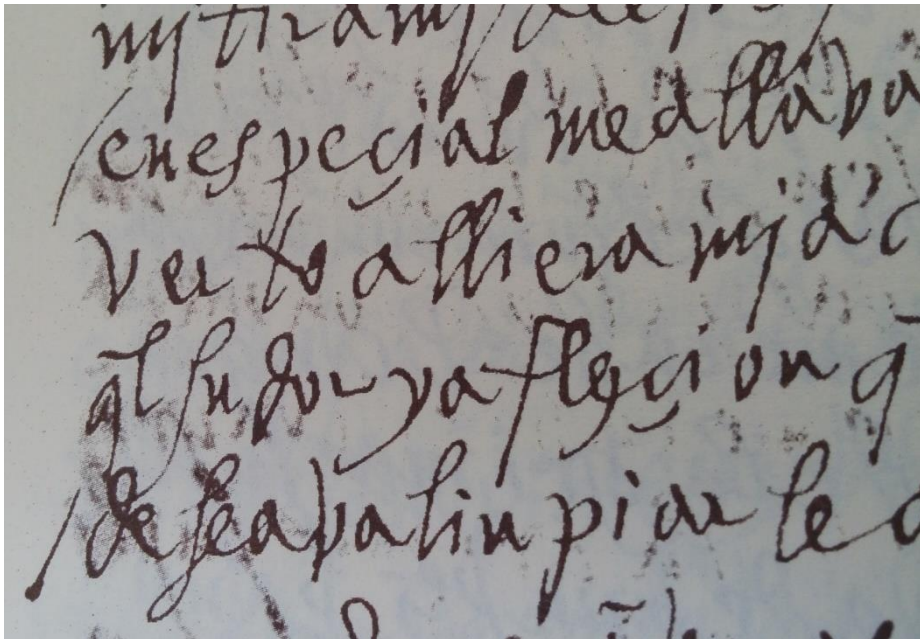 / en espeçial me allava
verto alli era mj a
q̄l sudor y afleçion q̄
/ deseava linpiar le